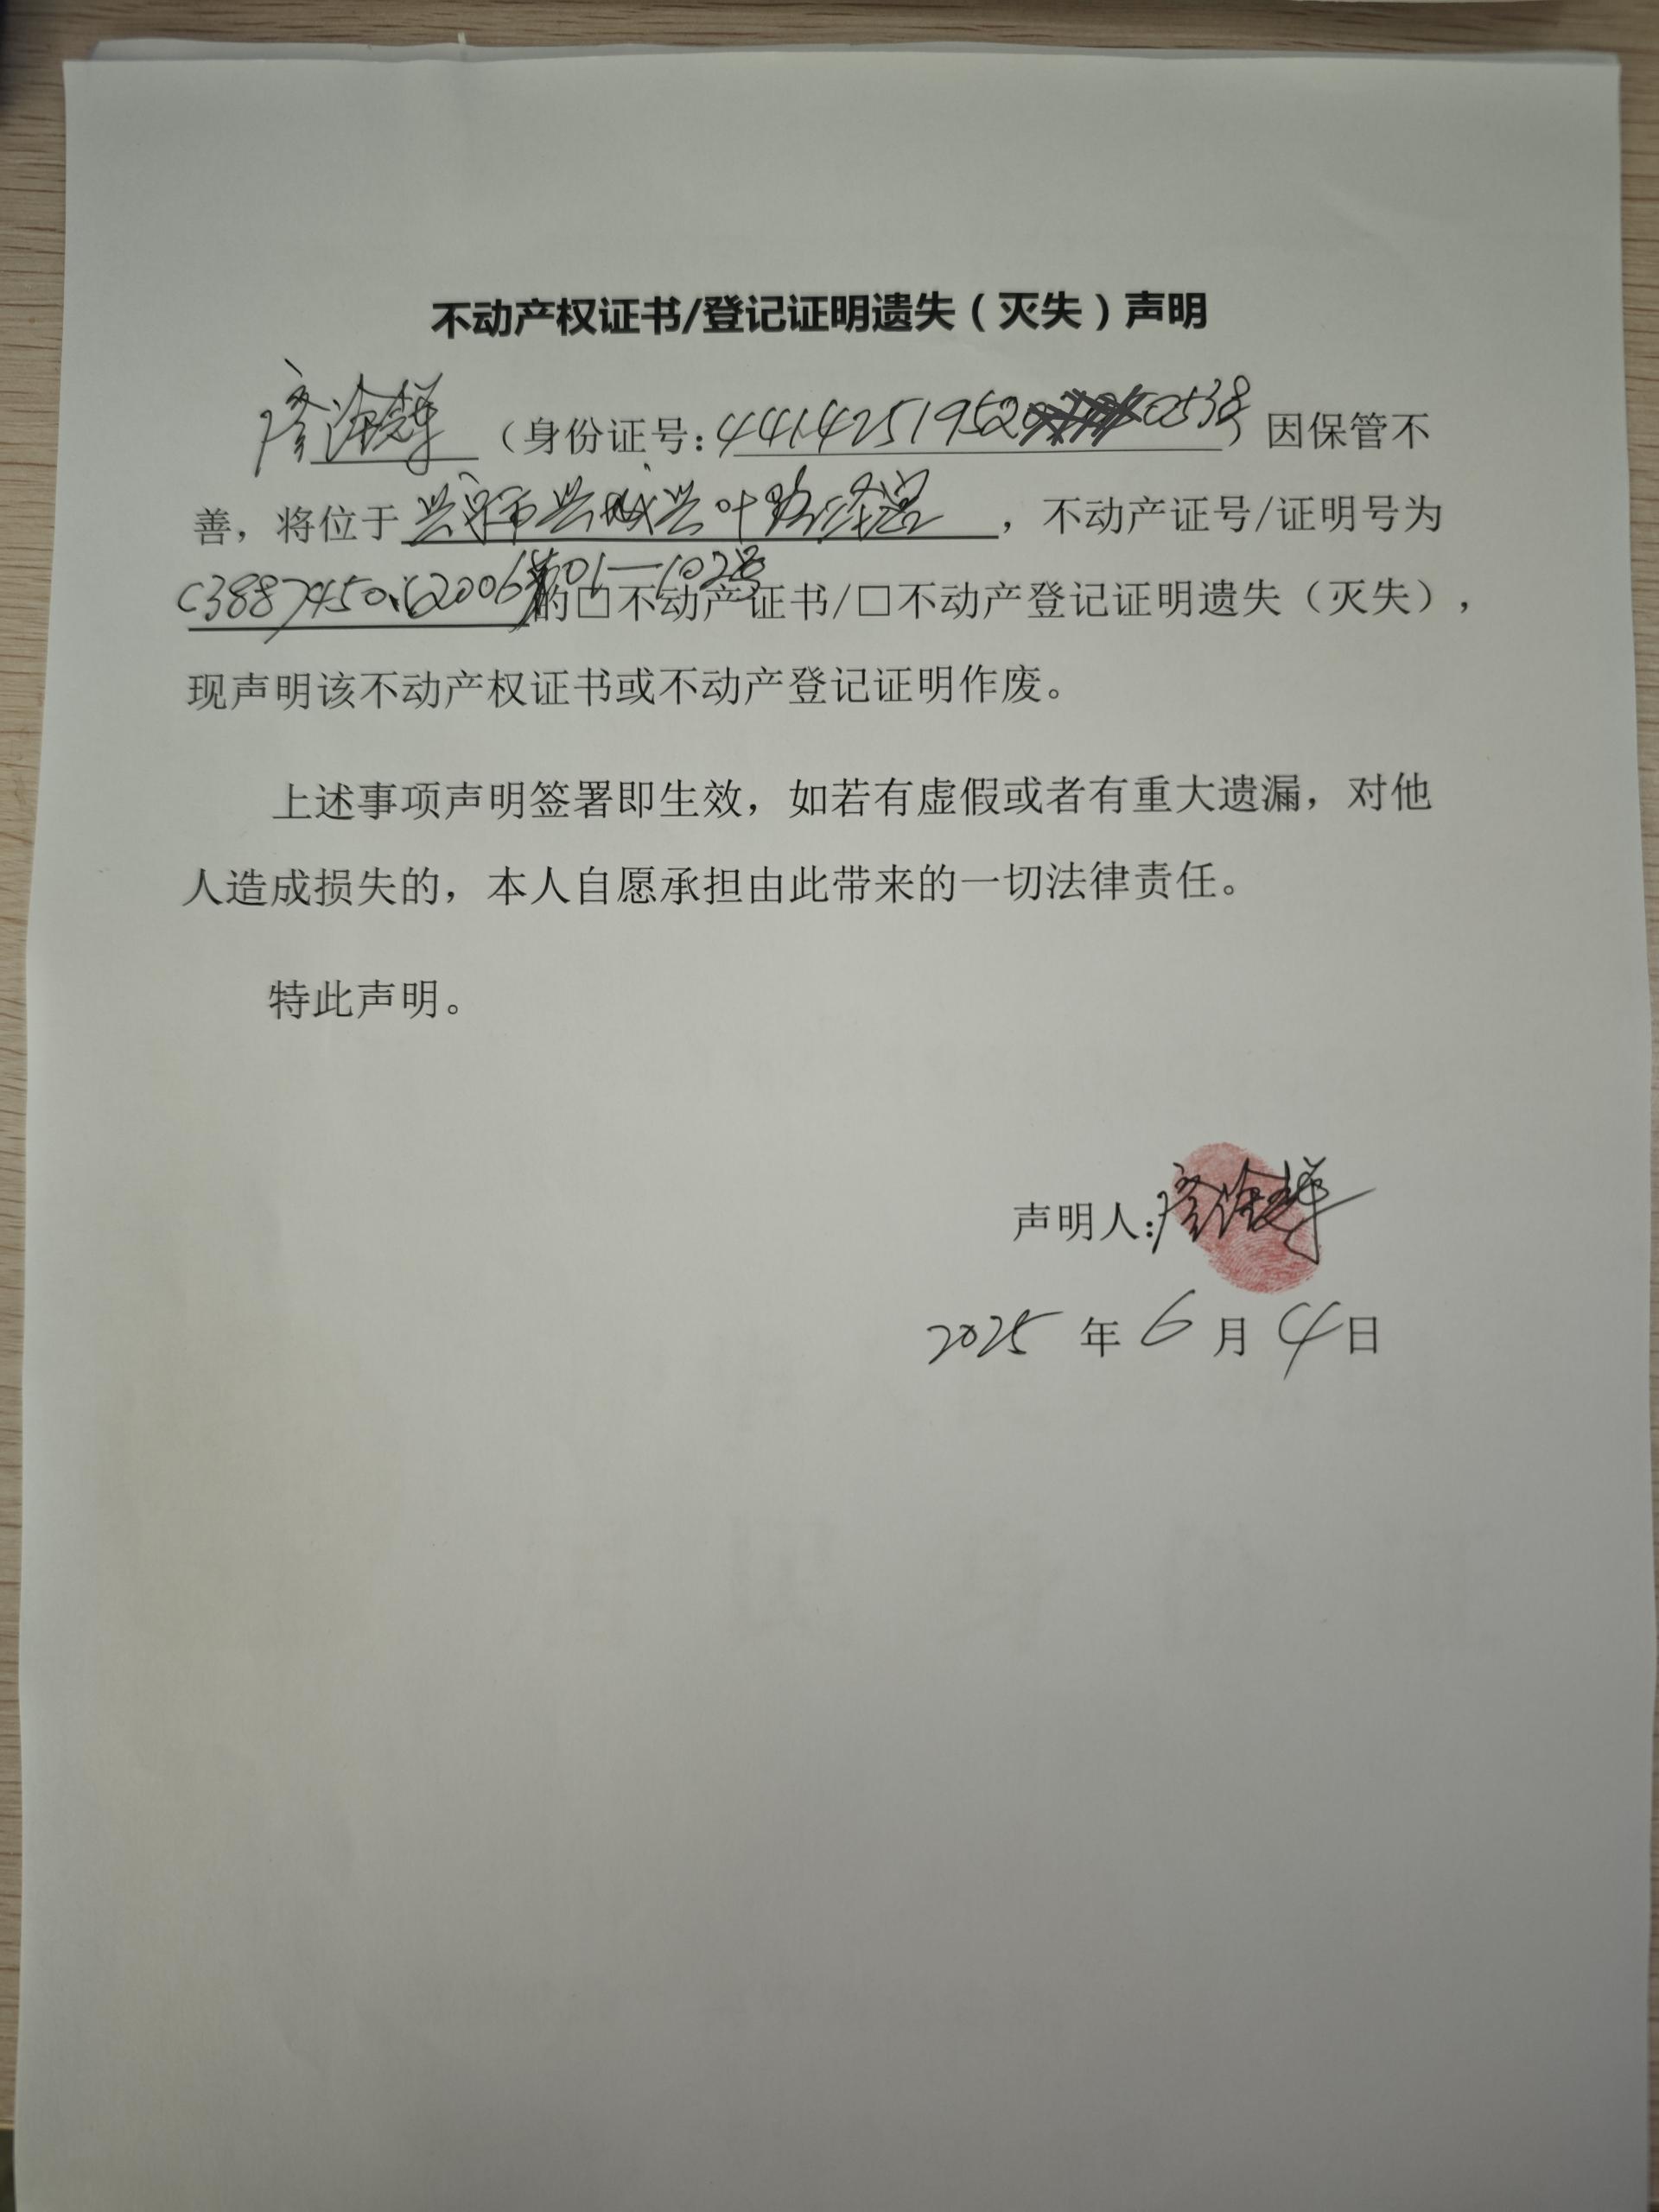 不动产权证书/登记证明遗失（灭失）声明
廖 （身份证号：4414251952 0538）因保管不
善，将位于兴宁市兴城兴叶路 ，不动产证号/证明号为
C3887450、 的□不动产证书/□不动产登记证明遗失（灭失），
现声明该不动产权证书或不动产登记证明作废。
上述事项声明签署即生效，如若有虚假或者有重大遗漏，对他
人造成损失的，本人自愿承担由此带来的一切法律责任。
特此声明。
声明人：廖
2025 年 6 月 4 日